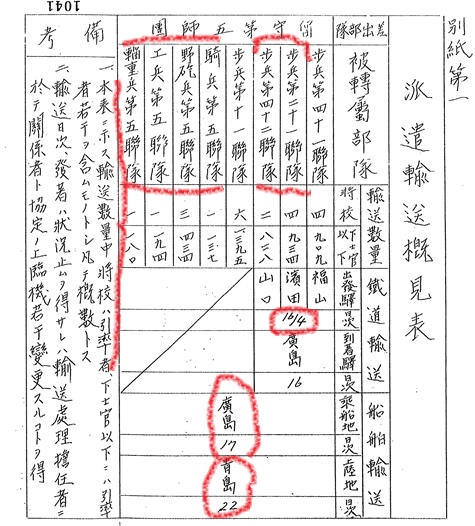 1041
別紙第一
派遣輸送概見表
差出部隊
被轉屬部隊
輸送數量
將校
下士官以下
鐵道輸送
出發驛
日次
到着驛
日次
船舶輸送
乘船地
日次
陸地
日次
留守第五師團
步兵第四十一聯隊 四 九〇九 福山
步兵第二十一聯隊 四 九三四 濱田 16/4 廣島 16
步兵第四十二聯隊 二 八三八 山口
步兵第十一聯隊 六 一三九五
騎兵第五聯隊 一 一三七
野砲兵第五聯隊 三 四三四
工兵第五聯隊 一 一九四
輜重兵第五聯隊 一 一八〇
廣島 17 靑島 22
備考
一、本表ニ示ス輸送數量中將校ハ引率者、下士官以下ニハ引率
者若干ヲ含ムモノトシ凡テ概數トス
二、輸送日次、發着ハ狀況止ムヲ得サレハ輸送處理擔任者ニ
於テ關係者ト協定ノ上臨機若干變更スルコトヲ得